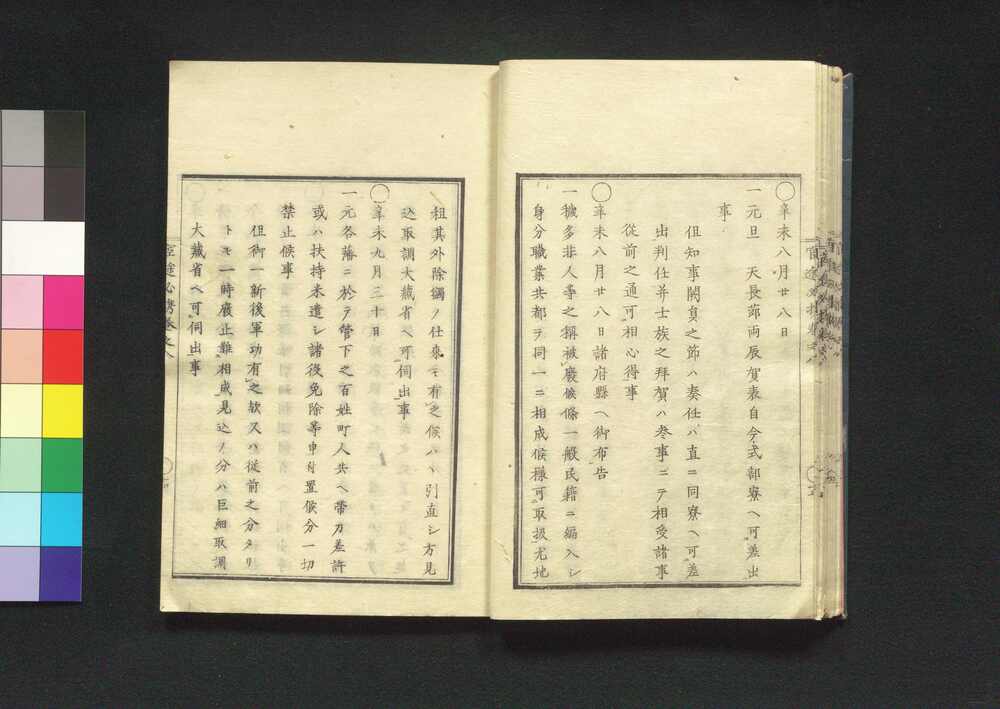 〇辛未八月廿八日
一元旦　天長節両辰賀表自今式部寮ヘ可差出
事
但知事闕員之節ハ奏任ハ直ニ同寮ヘ可差
出判任并士族之拜賀ハ参事ニテ相受諸事
從前之通可相心得事
〇辛未八月廿八日諸府縣ヘ御布告
一穢多非人等之稱被廢候條一般民籍ニ編入シ
身分職業共都テ同一ニ相成候様可取扱尤地
租其外除蠲ノ仕來モ有之候ハヽ引直シ方見
込取調大藏省ヘ可伺出事
〇辛未九月三十日
一元各藩ニ於テ管下之百姓町人共ヘ帶刀差許
或ハ扶持米遣シ諸役免除等申付置候分一切
禁止候事
但御一新後軍功有之歟又ハ從前之分タリ
トモ一時廢止難相成見込ノ分ハ巨細取調
大藏省ヘ可伺出事
官途必携巻之八